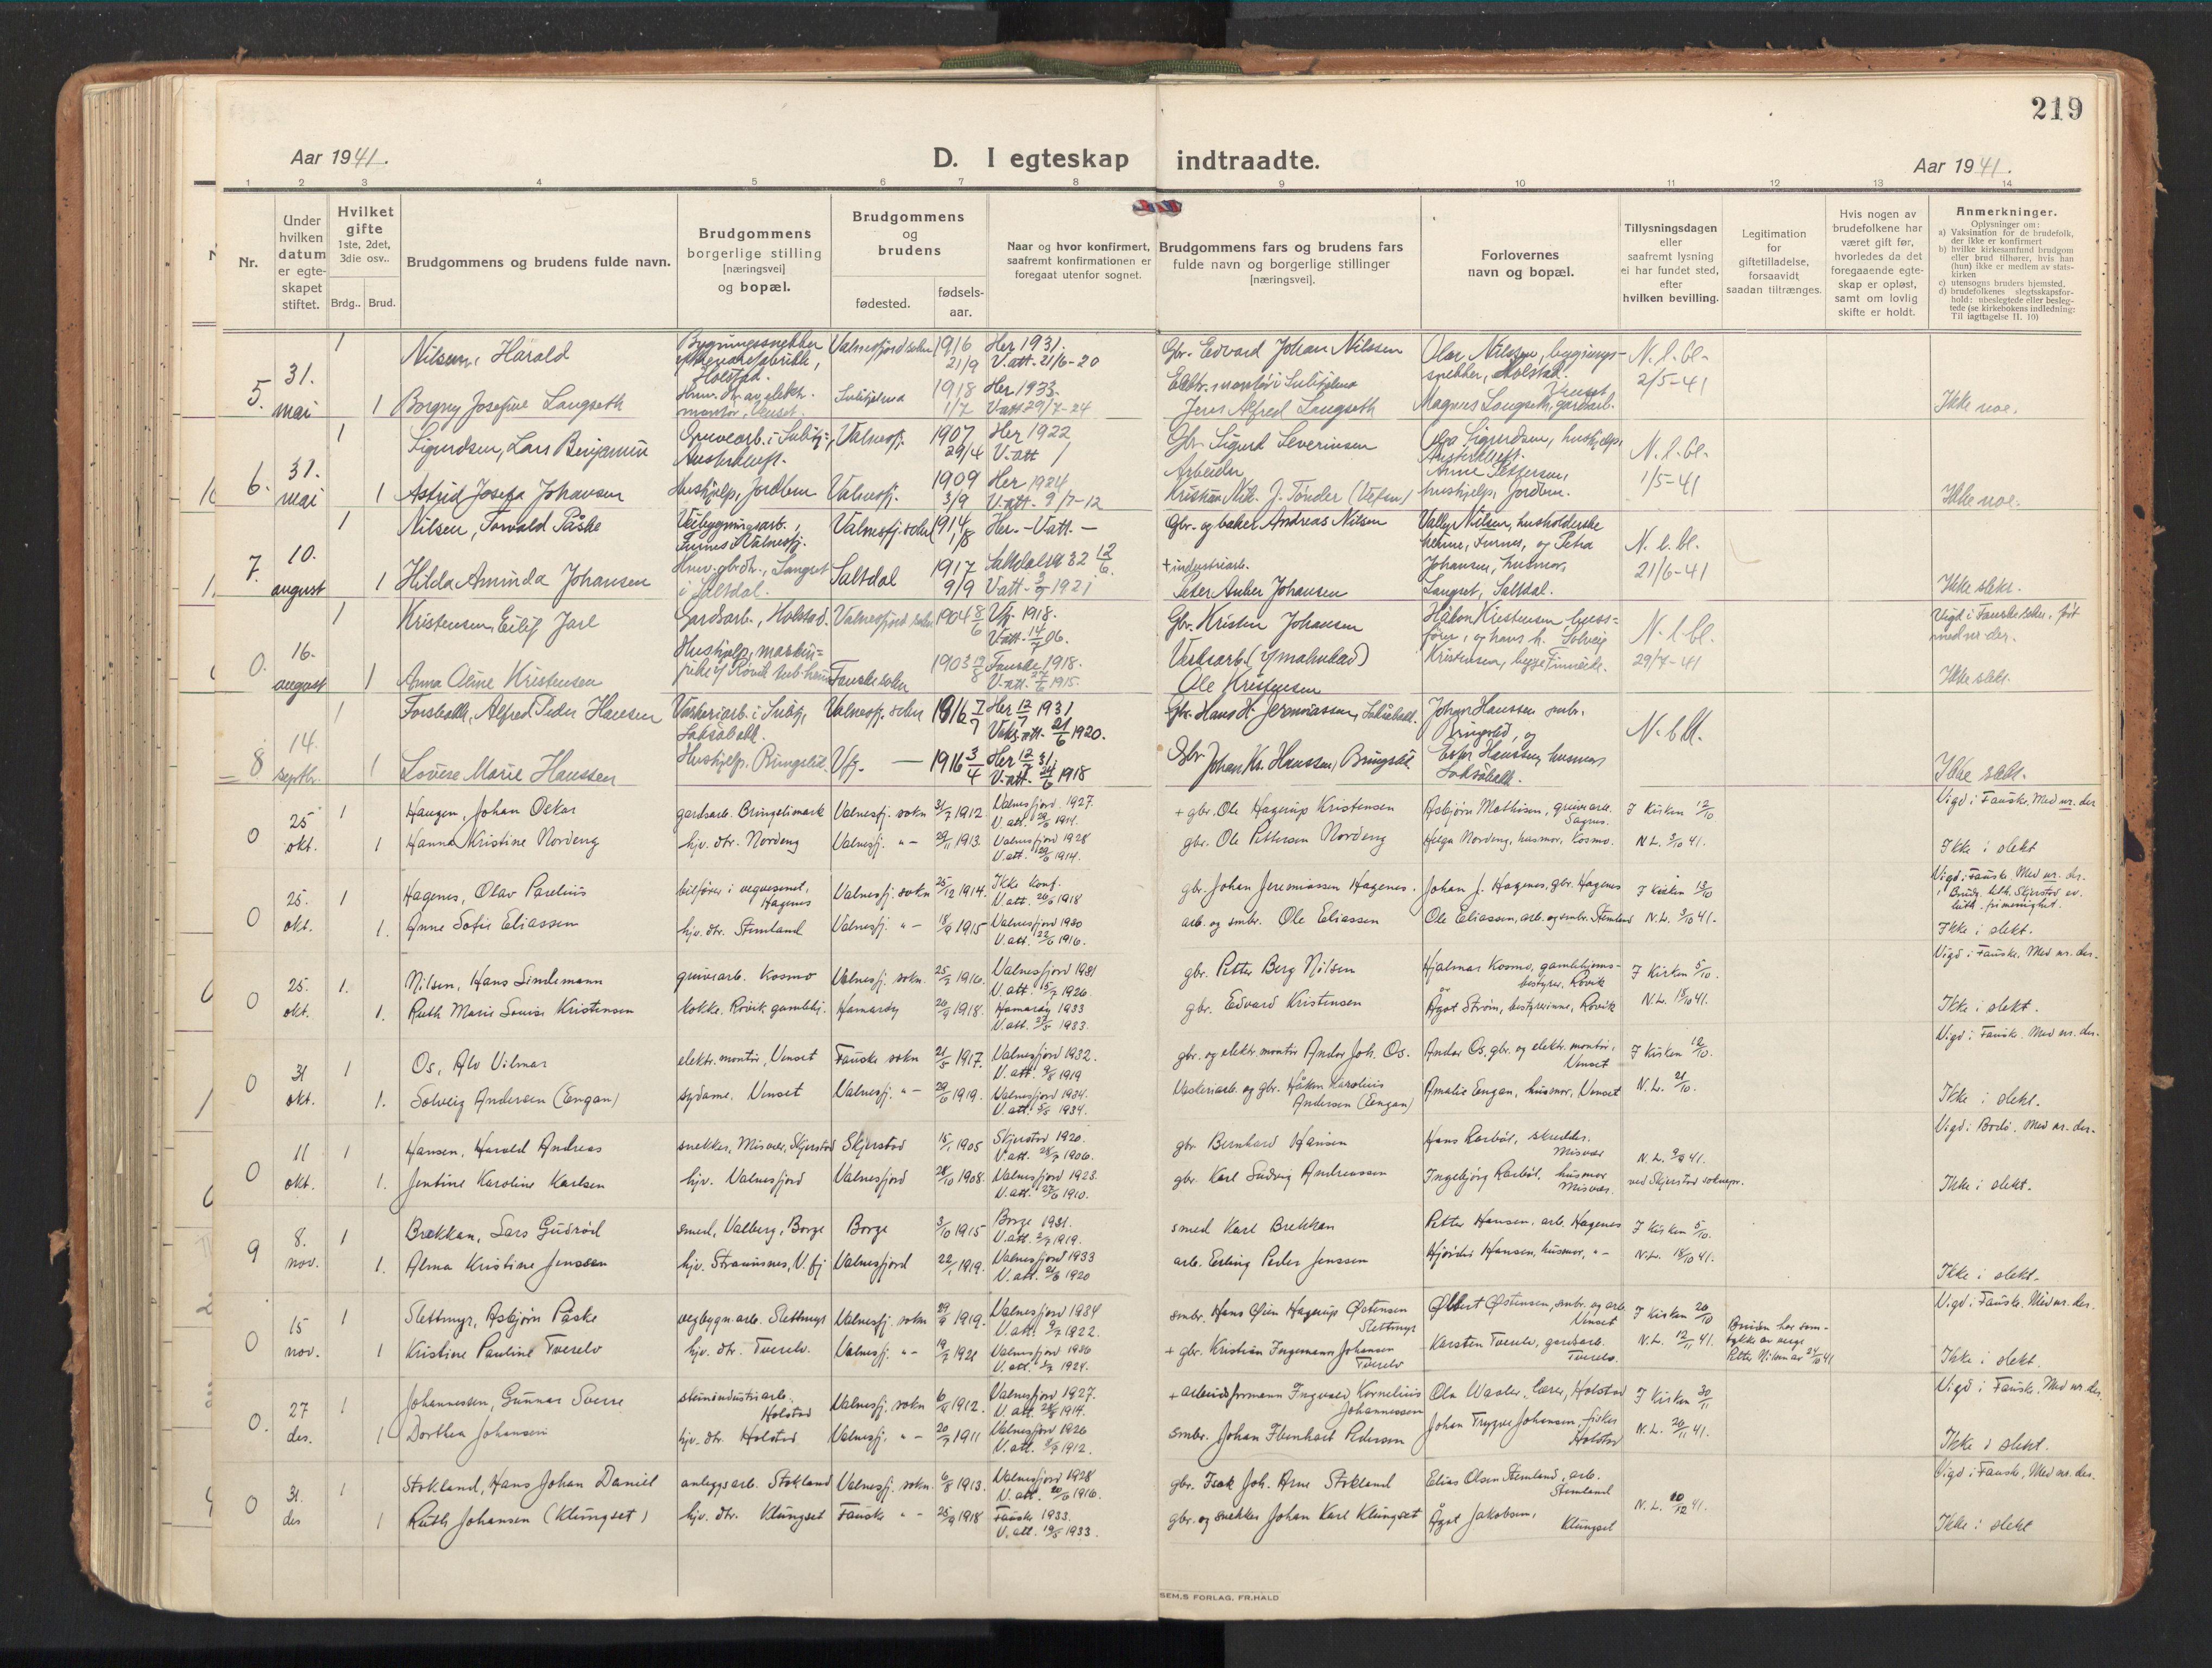 219
Aar 1941.
D. I egteskap indtraadte.
Aar 1941.
1 2 3 4 5 6 7 8 9 10 11 12 13 14
Nr.
Under hvilken datum er egteskapet stiftet.
Hvilket gifte 1ste, 2det, 3die osv..
Brdg.. Brud.
Brudgommens og brudens fulde navn.
Brudgommens borgerlige stilling [næringsvei] og bopæl.
Brudgommens og brudens
fødested.
fødsels-aar.
Naar og hvor konfirmert, saafremt konfirmationen er foregaat utenfor sognet.
Brudgommens fars og brudens fars fulde navn og borgerlige stillinger [næringsvei].
Forlovernes navn og bopæl.
Tillysningsdagen eller saafremt lysning ei har fundet sted, efter hvilken bevilling.
Legitimation for giftetilladelse, forsaavidt saadan tiltrænges.
Hvis nogen av brudefolkene har været gift før, hvorledes da det foregaaende egteskap er opløst, samt om lovlig skifte er holdt.
Anmerkninger.
Oplysninger om:
a) Vaksination for de brudefolk, der ikke er konfirmert
b) hvilke kirkesamfund brudgom eller brud tilhører, hvis han (hun) ikke er medlem av statskirken
c) utensogns bruders hjemsted.
d) brudefolkenes slegtsskapsforhold: ubeslegtede eller beslegtede (se kirkebokens indledning: Til iagttagelse II. 10)
5. 31. mai 1 1
Nilsen, Harald
Holstad.
Valnesfjord sokn 1916 21/9 Her 1931. V. att. 21/6-20
Gbr. Edvard Johan Nilssen
Olav Nilssen, bygningssnekker, Holstad.
N. l. bl. 2/5-41
Borgny Josefine Langseth
Sulitjelma 1918 1/7 Her 1933. V. att 29/7-24
Elektr. montør i Sulitjelma
Jens Alfred Langseth
Magnus Langseth, gardsarb. Venset
Ikke noe.
6. 31. mai 1 1
Sigurdsen, Lars Benjamin
Gruvearb. i Sulitj.,
Valnesfj. 1907 29/4 Her 1922 V. att
Gbr. Sigurd Severinsen
Sigurdsen, hushjelp,
N. l. bl. 1/5-41
Astrid Josefa Johansen
Hushjelp, Jordbru
Valnesfj. 1909 3/9 Her 1924 V. att. 9/7-12
Arbeider
Kristian Nik. J. Tønder (Vefsn)
Anne Pettersen, hushjelp, Jordbru.
Ikke noe.
7. 10. august 1 1
Nilsen, Torvald Påske
Veibygningsarb., Furnes i Valnesfj.
Valnesfj. sokn 1914 1/8 Her. - V. att. -
Gbr. og baker Andreas Nilsen
Valley Nilsen, husholderske
Furnes, og Petra Johansen, husmor, Langset, Saltdal.
N. l. bl. 21/6-41
Hilda Aminda Johansen
Langset i Saltdal.
Saltdal 1917 9/9 Saltdal 1932 12/6. V. att. 1921
+ industriarb.
Peter Anker Johansen
Ikke slekt.
0. 16. august 1 1
Kristensen, Eilif Jarl
Gardsarb., Holstad.
Valnesfjord sokn 1904 8/6 Vfj. 1918. V. att. 14/7 06.
Gbr. Kristen Johansen
Håkon Kristensen
og hans h. Solveig Kristensen, begge Finneid.
N. l. bl. 29/7-41
Vigd i Fauske sokn, ført med nr. der.
Anna Oline Kristensen
Fauske sokn 1903 Fauske 1918. V. att. 1915.
Ole Kristensen
Ikke slekt.
8 14. septbr. 1 1
Forsbakk, Alfred Peder Hansen
Vaskeriarb. i Sulitj, Laksåbakk.
Valnesfj. sokn 1916 7/7 Her 12/7 1931 1920.
Gbr. Hans H. Jeremiassen, Laksåbakk.
Johan Hanssen smbr. Bringslid, og
N. l. bl.
Lovise Marie Hanssen
Hushjelp. Bringslid.
Vfj. - 1916 3/4 Her 12/7 31 V. att. 1918
Gbr. Johan Kr. Hanssen, Bringsli.
Ester Hanssen, husmor Laksåbakk.
Ikke slekt.
0 25 okt. 1 1
Haugen, Johan Oskar
gardsarb. Bringslimark
Valnesfj. sokn 31/7 1912. Valnesfjord 1927. V. att. 29/6 1914.
+ gbr. Ole Hagerup Kristensen
Asbjørn Mathisen, gruvearb. Sagnes.
I Kirken 12/10
Vigd i Fauske. Med nr. der
Hanna Kristine Nordeng
hjv. dtr. Nordeng
Valnesfj. "- 29/11 1913. Valnesfjord 1928 V. att. 29/6 1914.
gbr. Ole Pettersen Nordeng
Helga Nordeng, husmor, Kosmo.
N. L. 3/10 41.
Ikke i slekt
0 25. okt. 1 1.
Hagenes, Olav Paulius
bilfører i vegvesenet, Hagenes
Valnesfj. sokn 25/12 1914. Ikke konf. V. att. 20/6 1918
gbr. Johan Jeremiassen Hagenes.
Johan J. Hagenes, gbr. Hagenes
I Kirken 13/10
Vigd i Fauske. Med nr. der.
Brudg. tilh. Skjerstad ev. luth. frimenighet.
Anne Sofie Eliassen
hjv. dtr. Stemland
Valnesfj. "- 18/9 1915 Valnesfjord 1930 V. att. 22/6 1916.
arb. og smbr. Ole Eliassen
Ole Eliassen, arb. og smbr. Stemland
N. L. 9/10 41.
Ikke i slekt.
0 25. okt. 1. 1.
Nilsen, Hans Lindemann
gruvearb. Kosmo
Valnesfj. sokn. 25/7 1916. Valnesfjord 1931 V. att. 15/7 1926
gbr. Petter Berg Nilsen
Hjalmar Kosmo, gamlehjemsbestyrer. Rovik
I Kirken 5/10.
Vigd i Fauske. Med nr. der.
Ruth Marie Louise Kristensen
kokke. Rovik gamlehj.
Hamarøy 26/9 1918. Hamarøy 1933 V. att. 27/5 1933.
gbr. Edvard Kristensen
Ågot Strøm, bestyrerinne, Rovik
N. L. 18/10 41.
Ikke i slekt.
0 31 okt. 1 1.
Os, Alv Vilmar
elektr. montør, Venset
Fauske sokn 21/5 1917. Valnesfjord 1932. V. att. 9/8 1919
gbr. og elektr. montør Andor Joh. Os.
Andor Os, gbr. og elektr. montør, Venset
I Kirken 12/10.
Vigd i Fauske. Med nr. der.
Solveig Andersen (Engan)
sydame. Venset
Valnesfj. "- 29/6 1919. Valnesfjord 1934. V. att. 5/8 1934.
Vaskeriarb. og gbr. Håkon Karolius Andersen (Engan)
Amalie Engan, husmor, Venset
N. L. 21/10.
Ikke i slekt.
0 11 okt. 1 1.
Hansen, Harald Andreas
snekker, Misvær, Skjerstad
Skjerstad 15/1 1905 Skjerstad 1920. V. att. 28/7 1906.
gbr Bernhard Hansen
Hans Rarbøl, skredder. Misvær
N. L. 9/9 41. ved Skjerstad soknepr.
Vigd i Bodø. Med nr. der.
Jentine Karoline Karlsen
hjv. Valnesfjord
Valnesfjord 28/10 1908. Valnesfjord 1923. V. att. 27/6 1910.
gbr. Karl Ludvig Andreassen
Ingebjørg Rarbøl, husmor Misvær.
Ikke i slekt.
9 8. nov. 1 1.
Brekkan, Lars Gudrød
smed, Valberg, Borge
Borge 3/10 1915 Borge 1931. V. att. 2/7 1919.
smed Karl Brekkan
Petter Hansen, arb. Hagenes
I Kirken 5/10.
Alma Kristine Jenssen
hjv. Straumsnes, V.fj
Valnesfjord 22/1 1919. Valnesfjord 1933 V. att. 21/6 1920
arb. Erling Peder Jenssen
Hjørdis Hansen, husmor, "-
N. L. 18/10 41.
Ikke i slekt.
0 15 nov. 1 1
Slettmyr, Asbjørn Påske
vegbygn. arb. Slettmyr
Valnesfj. sokn 29/4 1919. Valnesfjord 1934 V. att. 9/7 1922.
smbr. Hans Øien Hagerup Østensen Slettmyr
Ølbert Østensen, smbr. og arb. Venset
I Kirken 20/10
Vigd i Fauske. Med nr. der.
Kristine Pauline Tverelv
hjv. dtr. Tverelv.
Valnesfj. "- 19/7 1921 Valnesfjord 1936 V. att. 1924.
+ gbr. Kristian Ingemann Johansen Tverelv
Karsten Tverelv, gardsarb. Tverelv.
N. L. 12/11 41.
Bruden har samtykke av verge Petter Nilsen av 24/10 41
Ikke i slekt.
0. 27 des. 1 1
Johannessen, Gunnar Sverre
steinindustriarb. Holstad
Valnesfj. sokn 6/4 1912. Valnesfjord 1927. V. att. 28/6 1914.
+ arbeidsformann Ingvald Kornelius Johannessen
Ola Wasler. lærer, Holstad
I Kirken 30/11
Vigd i Fauske. Med nr. der.
Dorthea Johansen
hjv. dtr Holstad
Valnesfj. "- 20/7 1911 Valnesfjord 1926 V. att. 1912.
smbr. Johan Ebenhart Pedersen
Johan Trygve Johansen, fisker Holstad
N. L. 20/11 41.
Ikke i slekt.
0 31. des 1 1
Stokland, Hans Johan Daniel
anleggsarb. Stokland
Valnesfj. sokn. 6/8 1913. Valnesfjord 1928 V. att. 20/6 1916.
gbr. Isak Joh. Arne Stokland
Elias Olsen Stemland, arb. Stemland
Vigd i Fauske. Med nr. der.
Ruth Johansen (Klungset)
hjv. dtr. Klungset
Fauske "- 25/9 1918 Fauske 1933. V. att. 19/5 1933.
gbr. og snekker Johan Karl Klungset
Ågot Jakobsen, Klungset
N. L. 10/12 41.
Ikke i slekt
SEM.S FORLAG, FR.HALD